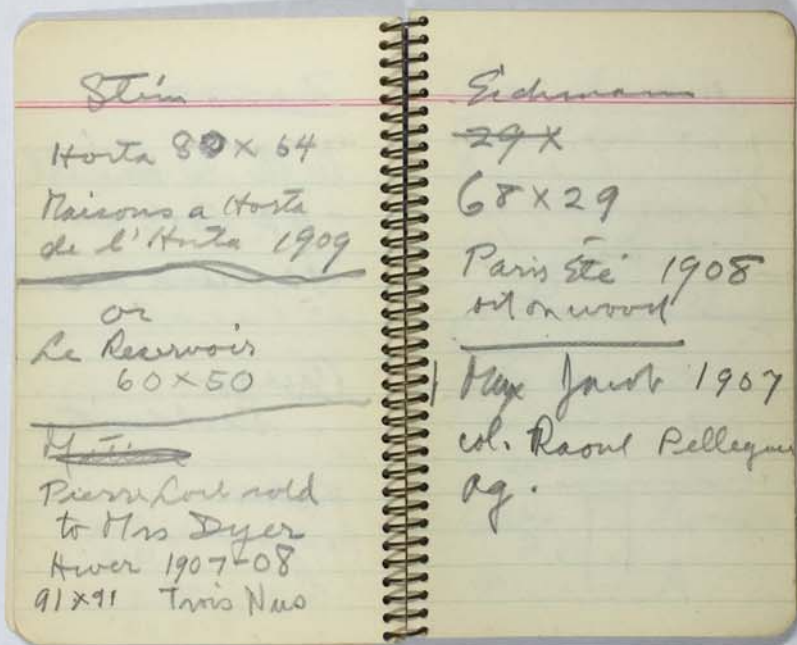 Stein
Horta 80 x 64
Maisons a Horta
de l'Horta 1909
or
Le Reservoir
60 x 50
Pierre Loeb sold
to Mrs Dyer
Hiver 1907-08
91 x 91 Trois Nus
Eichmann
29 x
68 x 29
Paris Été 1908
oil on wood
Max Jacob 1907
col. Raoul Pellequer
pg.